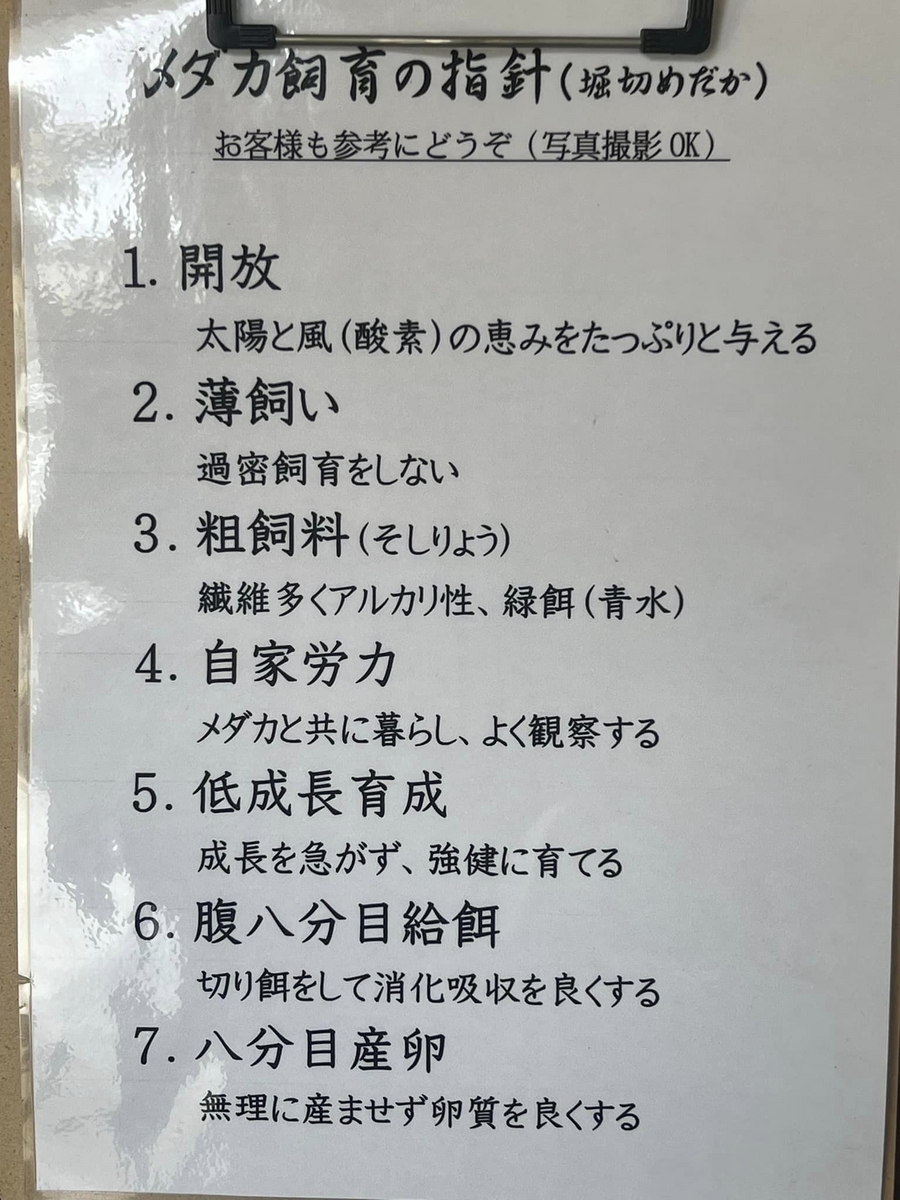 メダカ飼育の指針(堀切めだか)
お客様も参考にどうぞ（写真撮影OK）
1. 開放
太陽と風(酸素)の恵みをたっぷりと与える
2. 薄飼い
過密飼育をしない
3. 粗飼料(そしりょう)
繊維多くアルカリ性、緑餌(青水)
4. 自家労力
メダカと共に暮らし、よく観察する
5. 低成長育成
成長を急がず、強健に育てる
6. 腹八分目給餌
切り餌をして消化吸収を良くする
7. 八分目産卵
無理に産ませず卵質を良くする